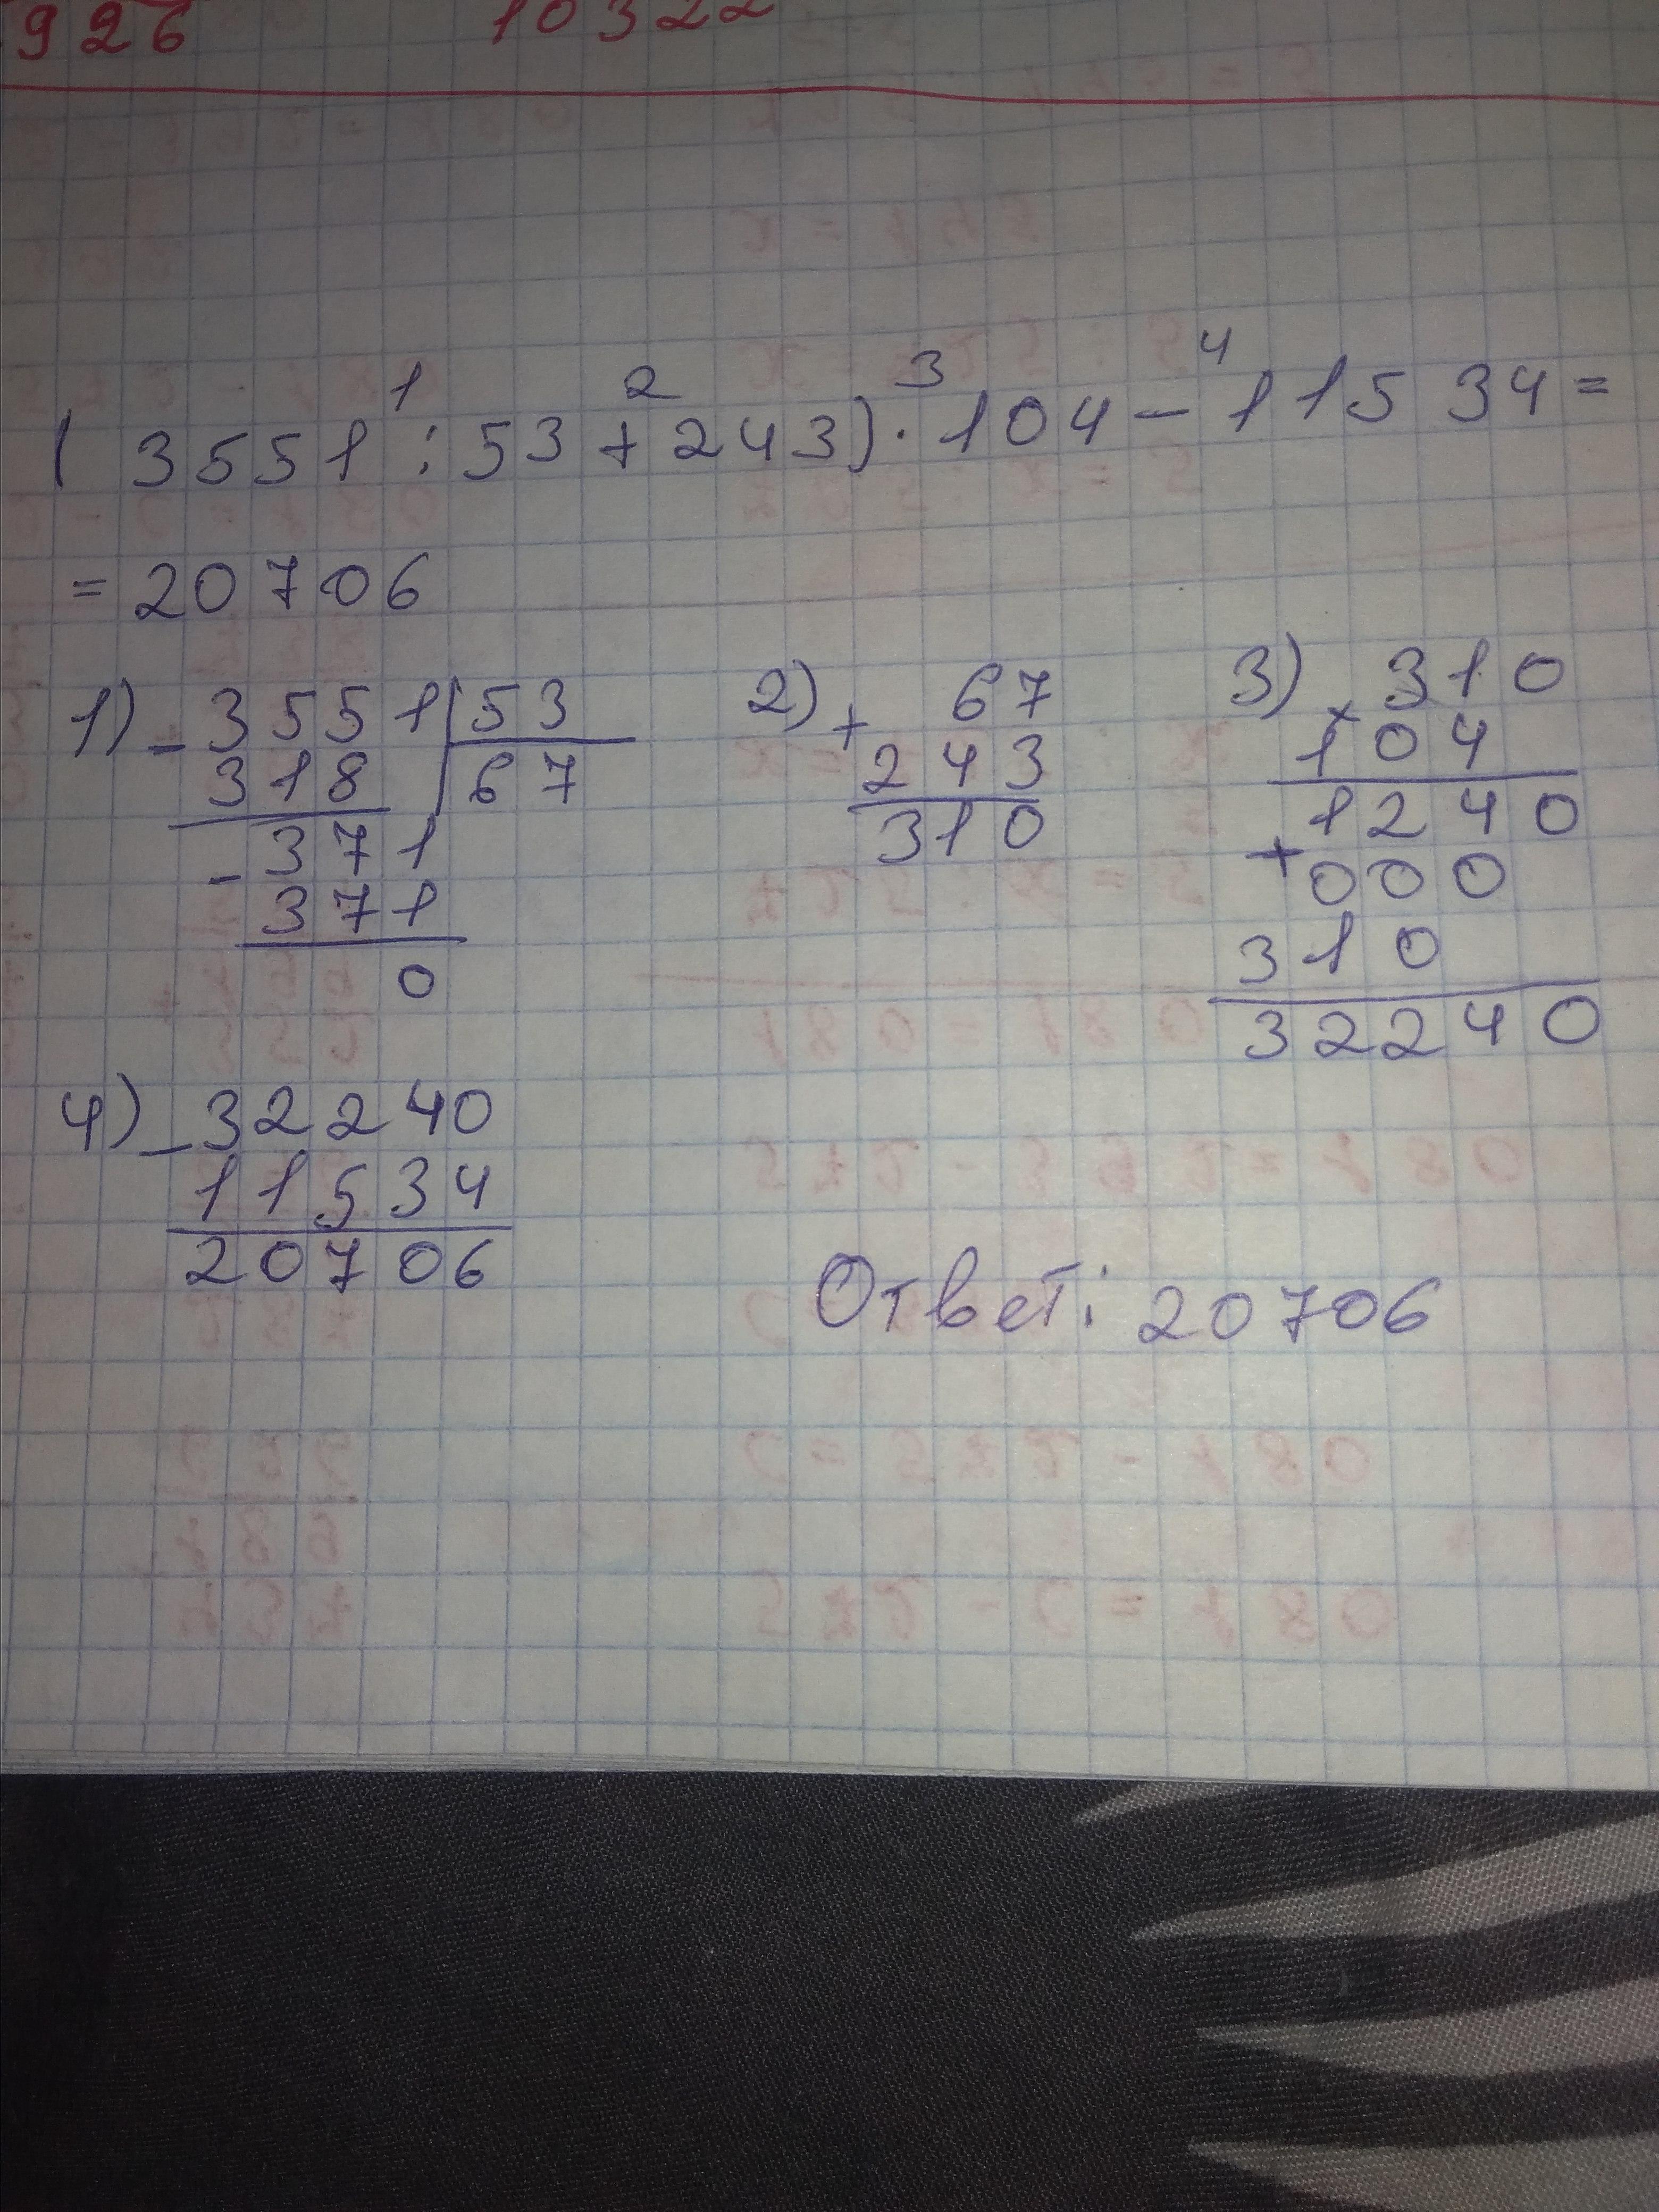 926 10322
(3551 : 53 + 243) · 104 - 11534 =
1 2 3 4
= 20706
1) - 3551 | 53
318 67
- 371
371
0
2) + 67
243
310
3) × 310
104
1240
+ 000
310
32240
4) - 32240
11534
20706
Ответ: 20706